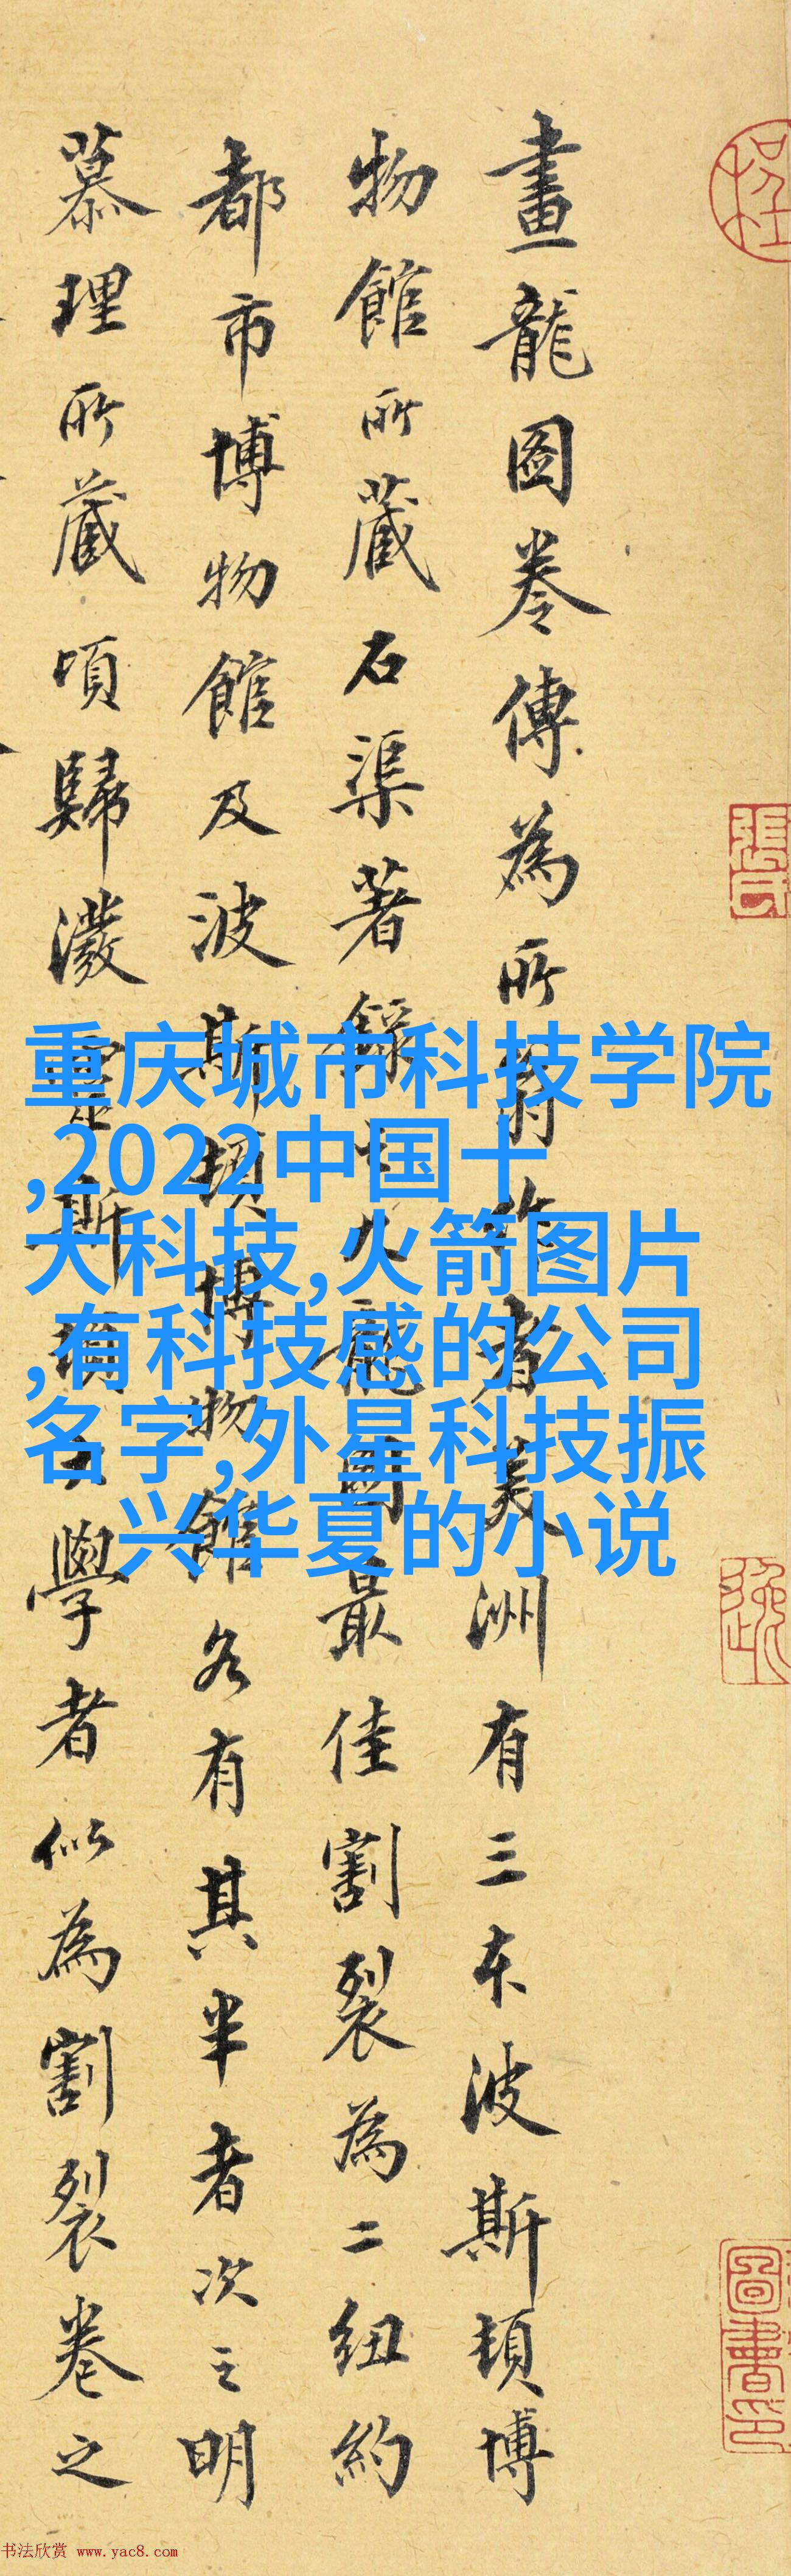 畫龍圖卷傳為所翁作者美洲有三本波斯頓博
物館所藏石渠著錄之九龍圖最佳割裂為二紐約
都市博物館及波斯頓博物館各有其半者次之明
慕理所藏頃歸潑靈斯頓大學者似為割裂卷之
重庆城市科技学院
,2022中国十
大科技,火箭图片
,有科技感的公司
名字,外星科技振
兴华夏的小说
張氏
书法欣赏 www.yac8.com